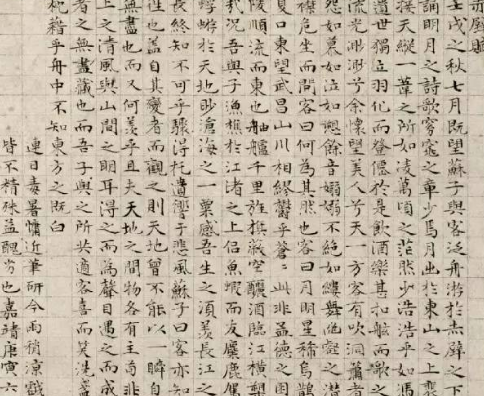 赤壁賦
壬戌之秋七月既望蘇子與客泛舟游於赤壁之下
誦明月之詩歌窈窕之章少焉月出於東山之上裴
接天縱一葦之所如凌萬頃之茫然兮浩浩乎如馮
遺世獨立羽化而登僊於是飲酒樂甚扣舷而歌之
流光渺渺兮余懷望美人兮天一方客有吹洞簫者
怨如慕如泣如愬餘音嫋嫋不絕如縷舞幽壑之潛
襟危坐而問客曰何為其然也客曰月明星稀烏鵲
夏口東望武昌山川相繆鬱乎蒼〻此非孟德之困
陵順流而東也舳艫千里旌旗蔽空釃酒臨江橫槊
哉況吾與子漁樵於江渚之上侶魚蝦而友麋鹿駕
蜉蝣於天地眇滄海之一粟感吾生之須羨長江之
長終知不可乎驟得托遺響于悲風蘇子曰客亦知
往也蓋自其變者而觀之則天地曾不能以一瞬自
無盡也而又何羨乎且夫天地之間物各有主苟非
上之清風與山間之明耳得之而為聲目遇之而成
者之無盡藏也而吾子與之所共適客喜而笑洗盞
枕藉乎舟中不知東方之既白
連日毒暑慵近筆研今雨稍涼戲
皆不精殊益醜劣也嘉靖庚寅六